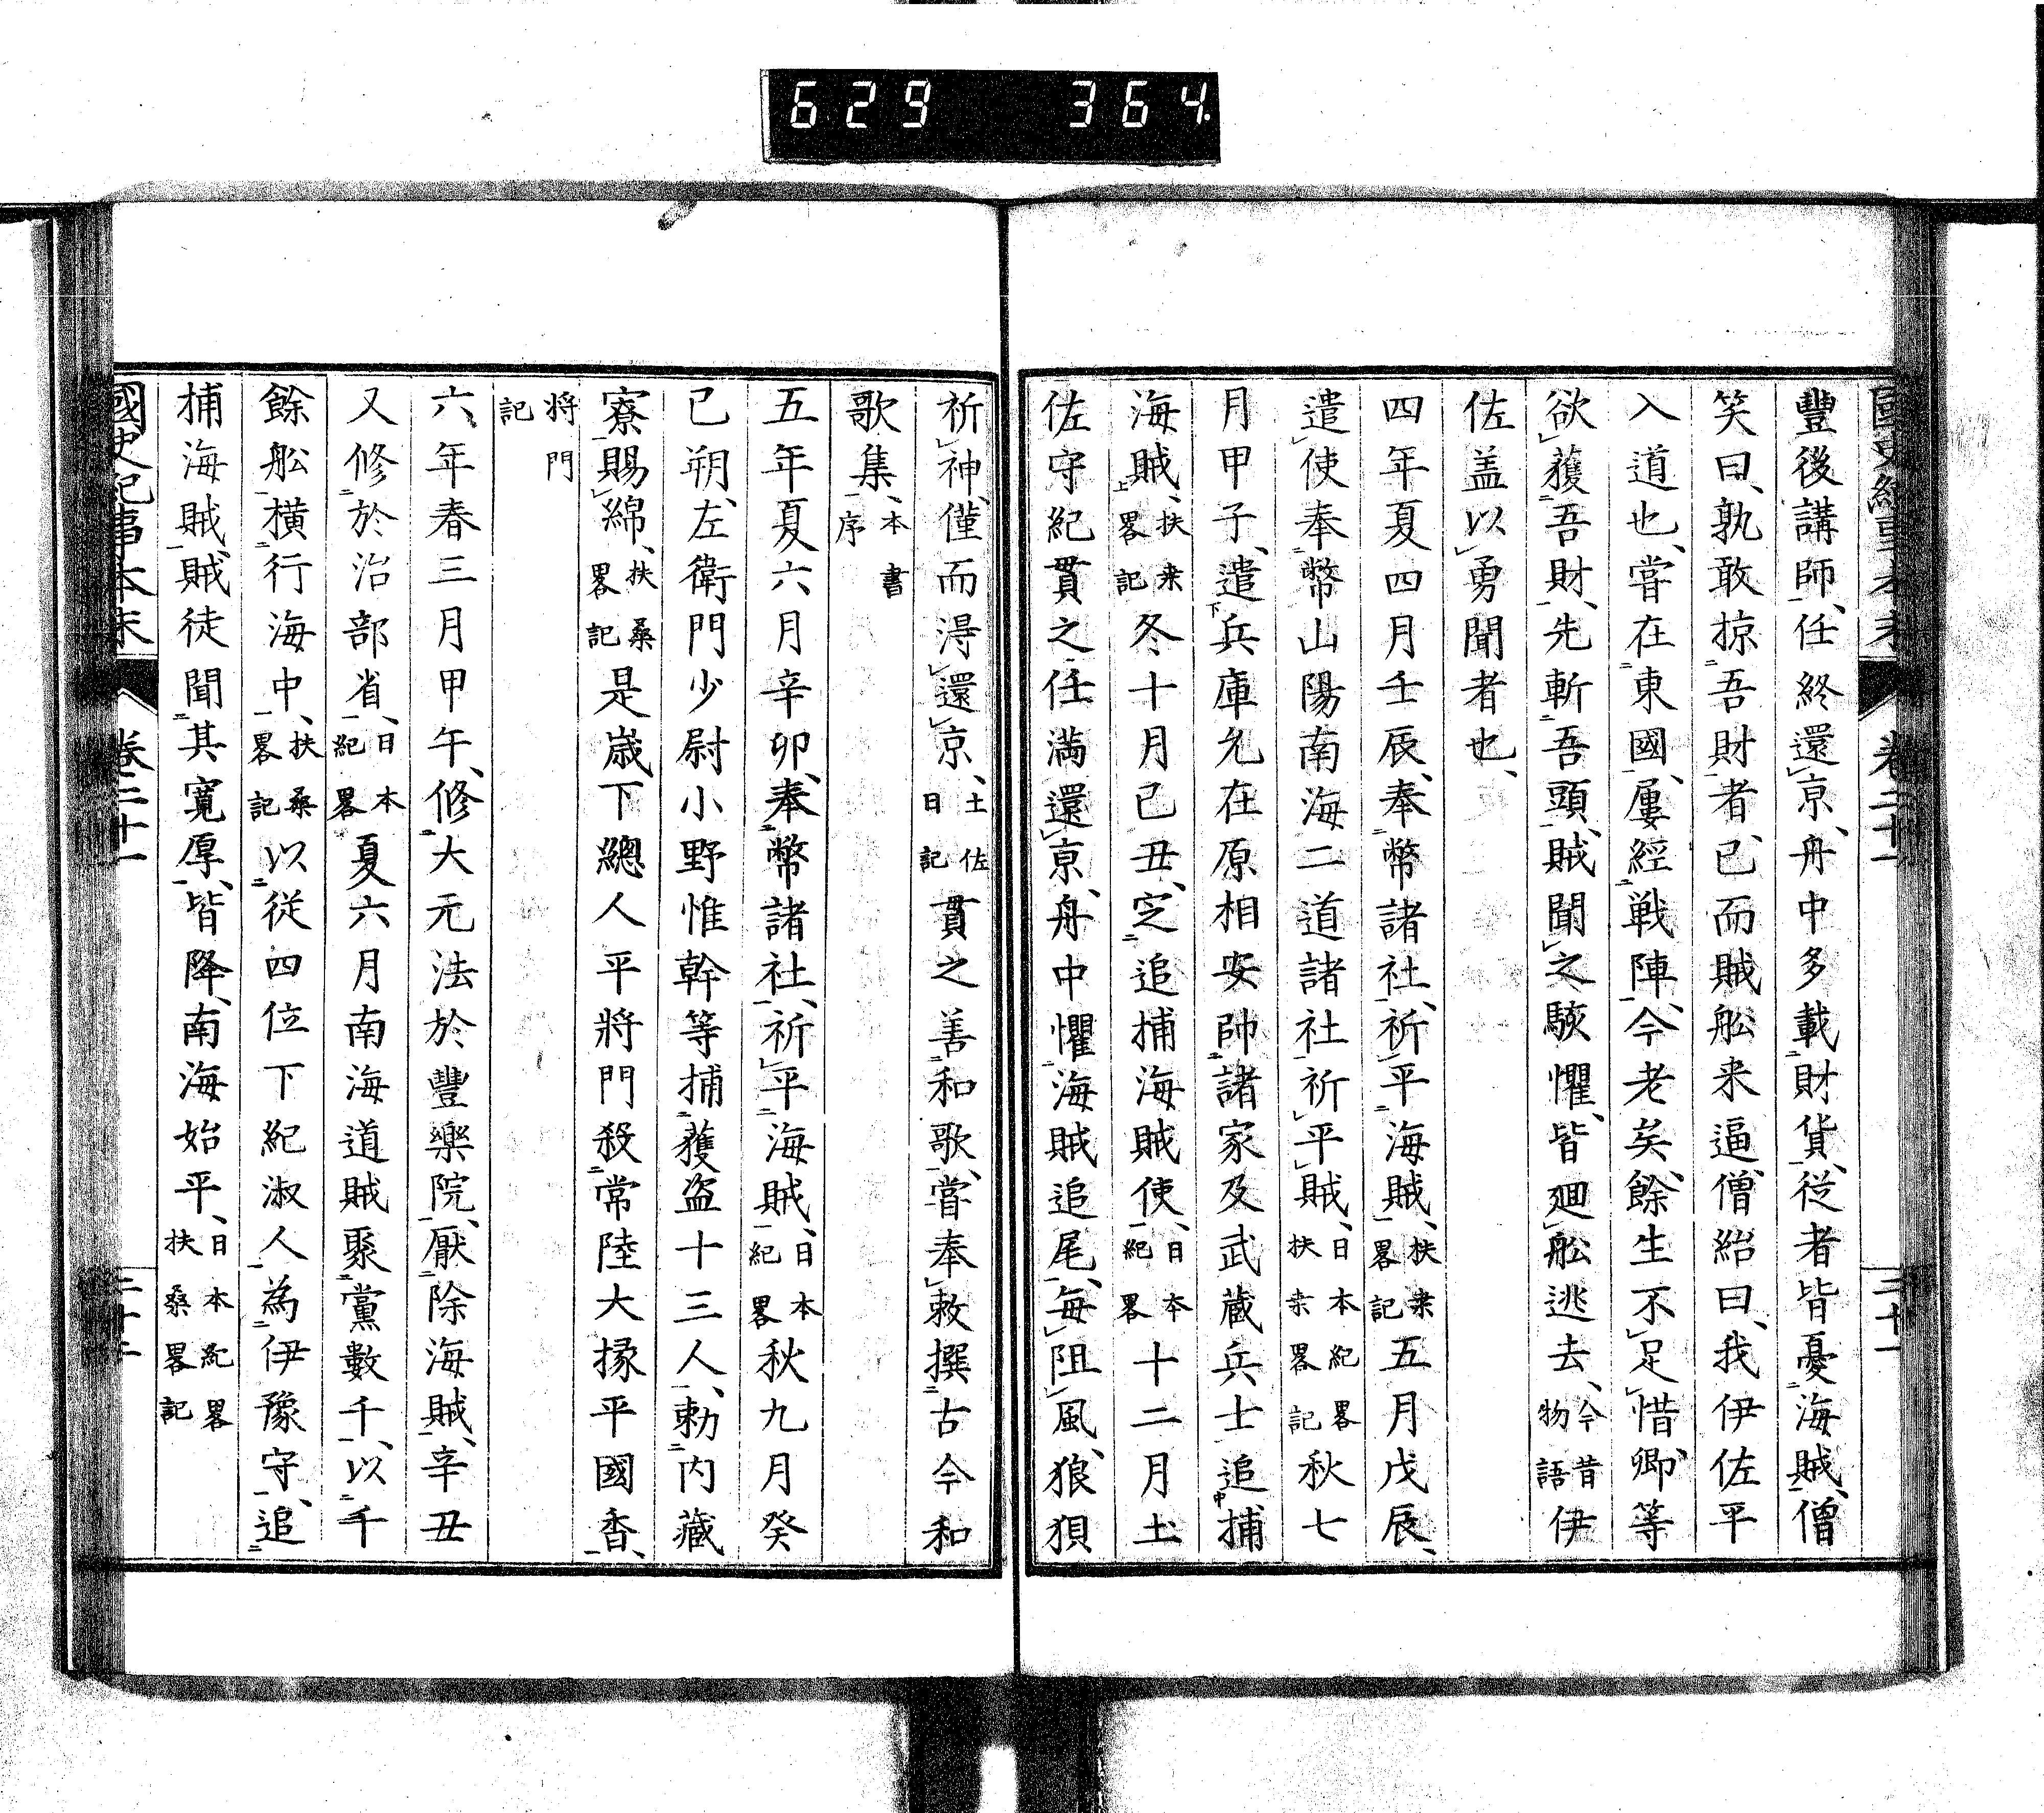 629 364
國史紀事本末 卷二十一 三十一
豐後講師、任終還京、舟中多載財貨、從者皆憂海賊、僧
笑曰、孰敢掠吾財者、已而賊舩来逼、僧紿曰、我伊佐平
入道也、嘗在東國、屢經戦陣、今老矣、餘生不足惜、卿等
欲獲吾財、先斬吾頭、賊聞之駭懼、皆廻舩逃去、今昔物語伊
佐盖以勇聞者也、
四年夏四月壬辰、奉幣諸社、祈平海賊、扶桒畧記五月戊辰、
遣使奉幣山陽南海二道諸社、祈平賊、日本紀畧扶桒畧記秋七
月甲子、遣兵庫允在原相安帥諸家及武蔵兵士追捕
海賊、扶桒畧記冬十月己丑、定追捕海賊使、日本紀畧十二月土
佐守紀貫之任満還京、舟中懼海賊追尾、每阻風、狼狽
祈神、僅而淂還京、土佐日記貫之善和歌、嘗奉敕撰古今和
歌集、本書序
五年夏六月辛卯、奉幣諸社、祈平海賊、日本紀畧秋九月癸
已朔、左衛門少尉小野惟幹等捕獲盗十三人、勅内藏
寮賜綿、扶桑畧記是歳下總人平將門殺常陸大掾平國香、
將門記
六年春三月甲午、修大元法於豐樂院、厭除海賊、辛丑
又修於治部省、日本紀畧夏六月南海道賊聚黨數千、以千
餘舩横行海中、扶桑畧記以從四位下紀淑人為伊豫守、追
捕海賊、賊徒聞其寬厚、皆降、南海始平、日本紀畧扶桑畧記
國史紀事本末 卷二十一 三十二